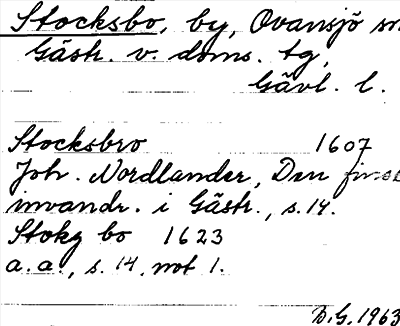 Stocksbo, by, Ovansjö sn
Gästr. v. doms. tg,
Gävl. l.
Stocksbro 1607
Joh. Nordlander, Den finska
invandr. i Gästr., s. 14.
Stokz bo 1623
a. a., s. 14, not 1.
D.G. 1963